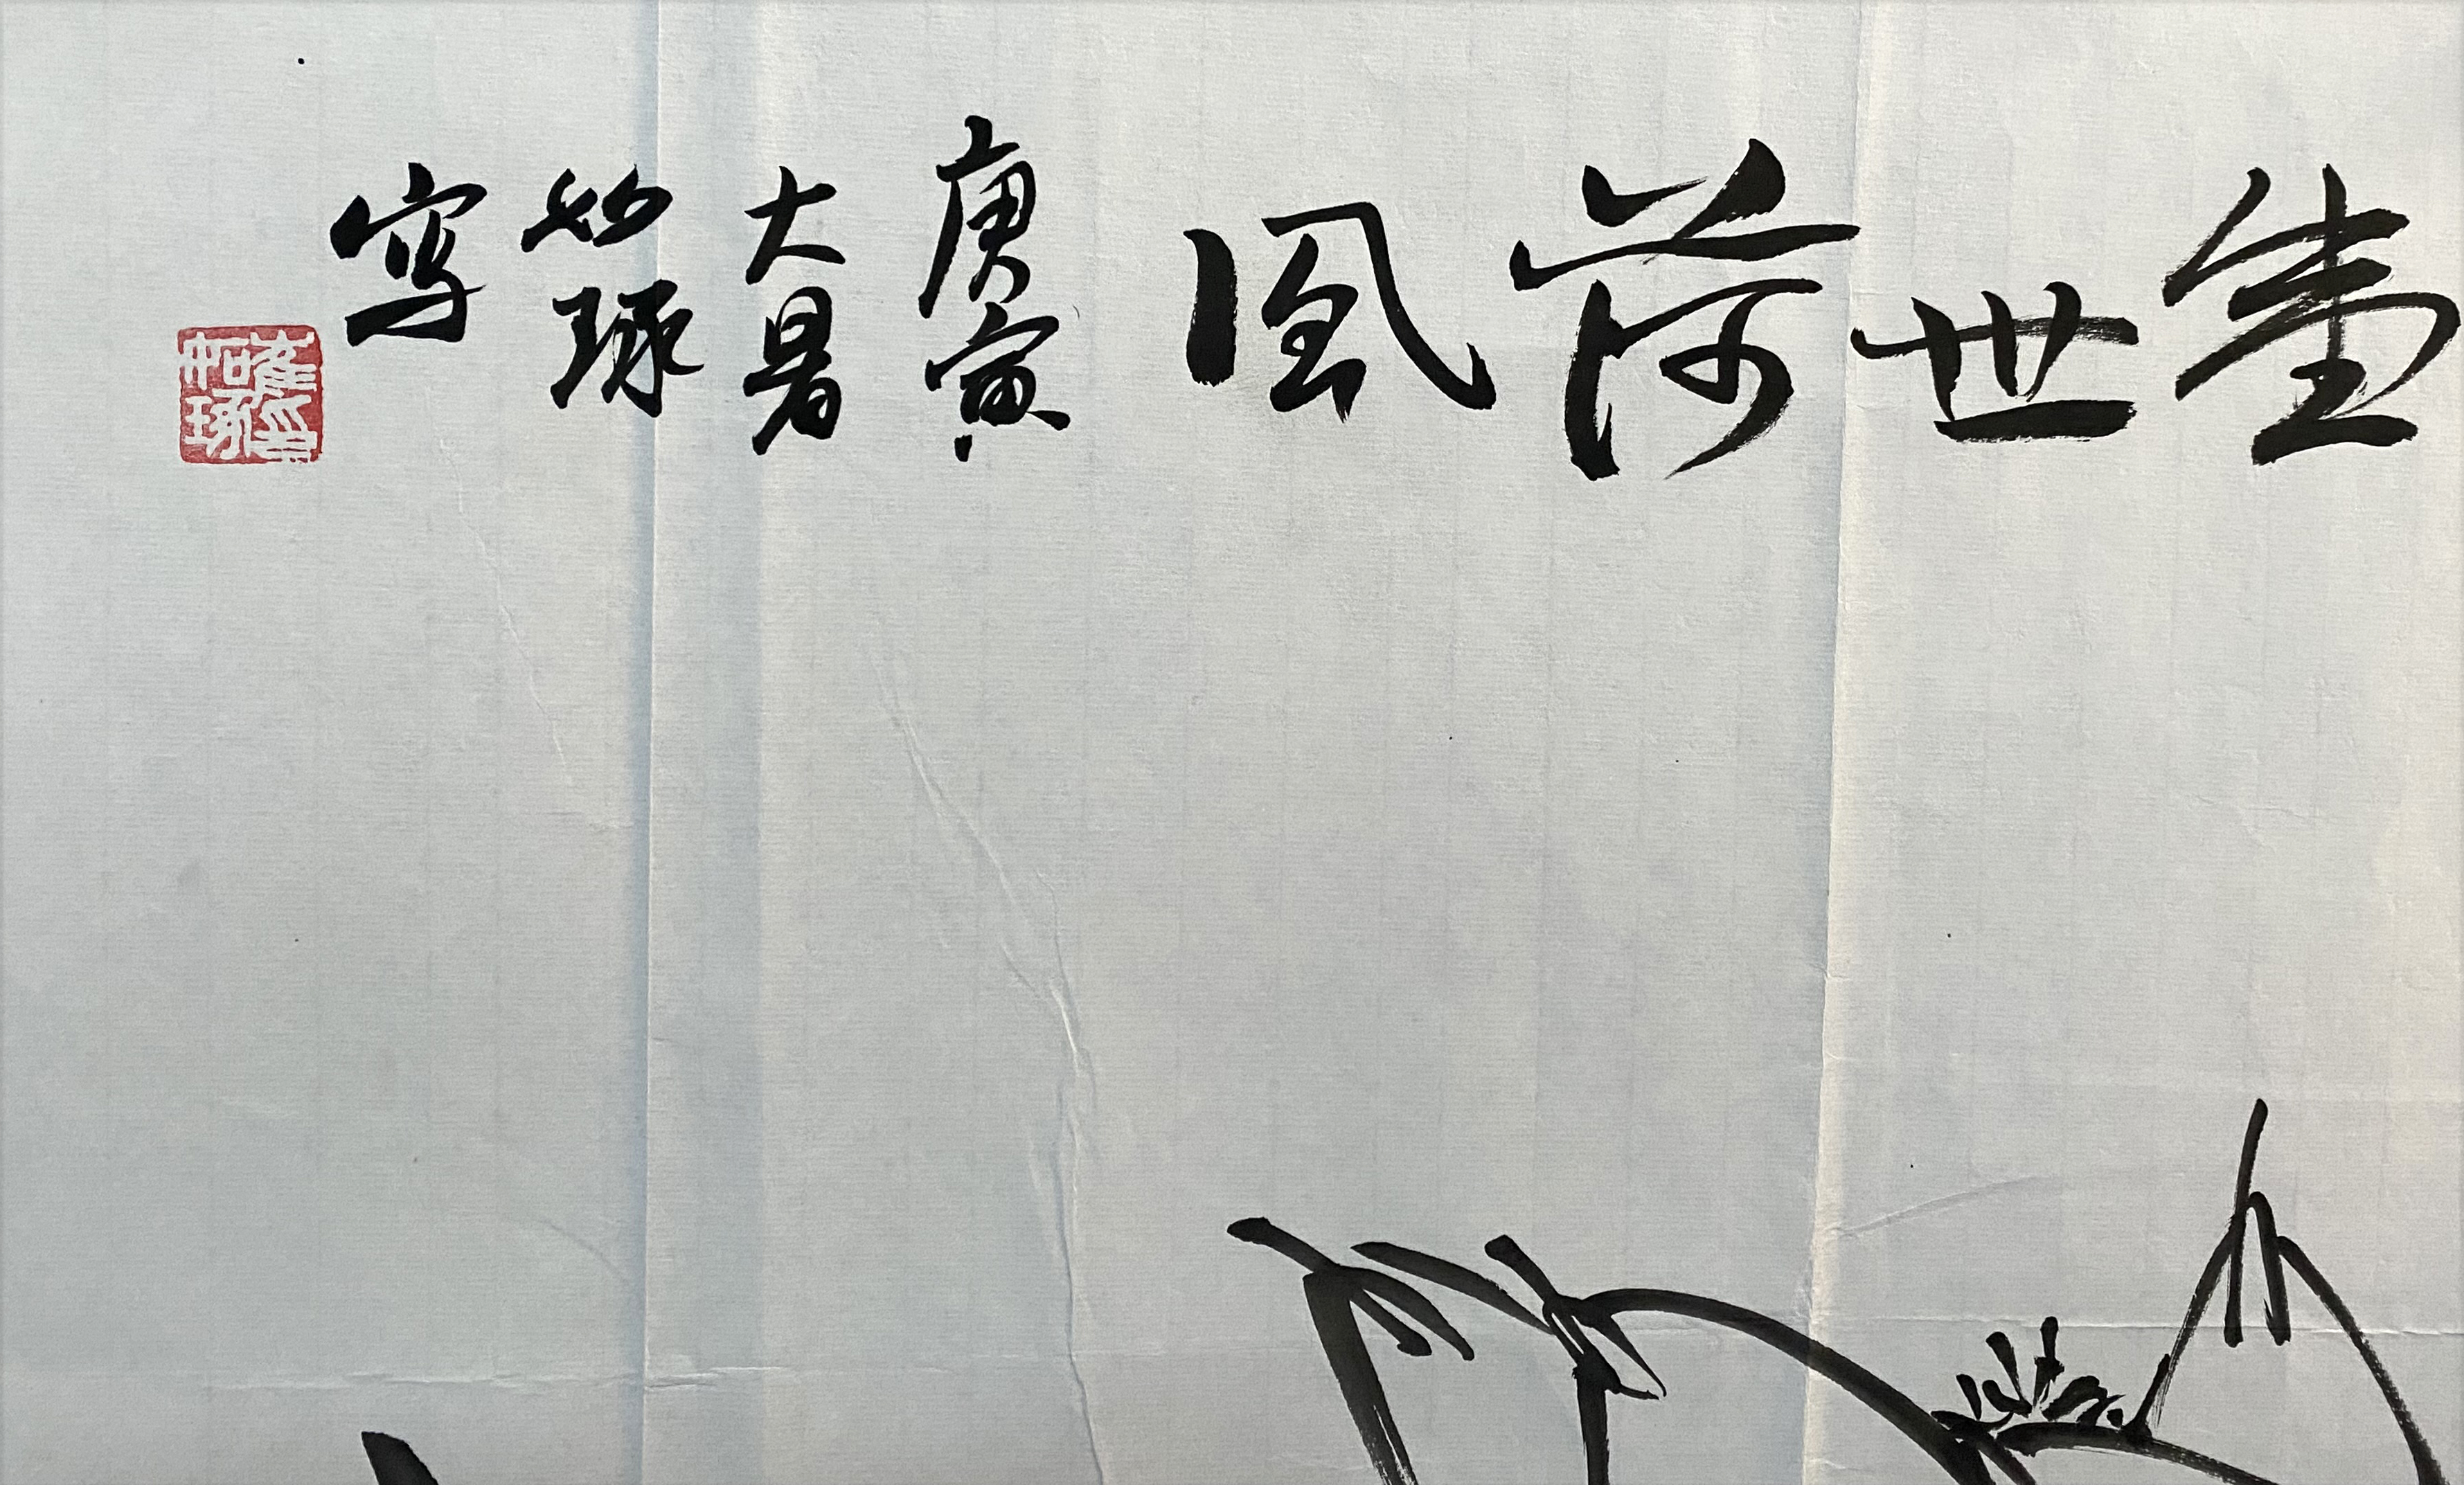 盛世荷風
庚寅
大暑
如琢
写
崔印
如琢